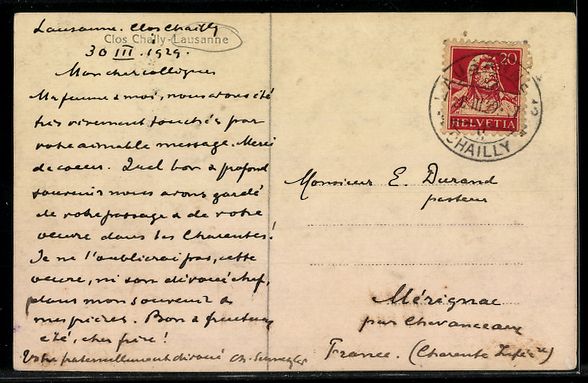 Lausanne. Clos Chailly
Clos Chailly-Lausanne
30 III 1929.
Mon cher collègue
Ma femme & moi, nous avons été
très vivement touchés par
votre aimable message. Merci
de coeur. Quel bon & profond
souvenir nous avons gardé
de votre passage & de votre
oeuvre dans les Charentes!
Je ne l'oublierai pas, cette
oeuvre, ni son dévoué chef,
dans mon souvenir &
mes prières. Bon &
été, cher frère!
Votre fraternellement dévoué Ch.
20
HELVETIA
CHAILLY
Monsieur E. Durand
pasteur
Mérignac
par Chevanceaux
France. (Charente Infére)